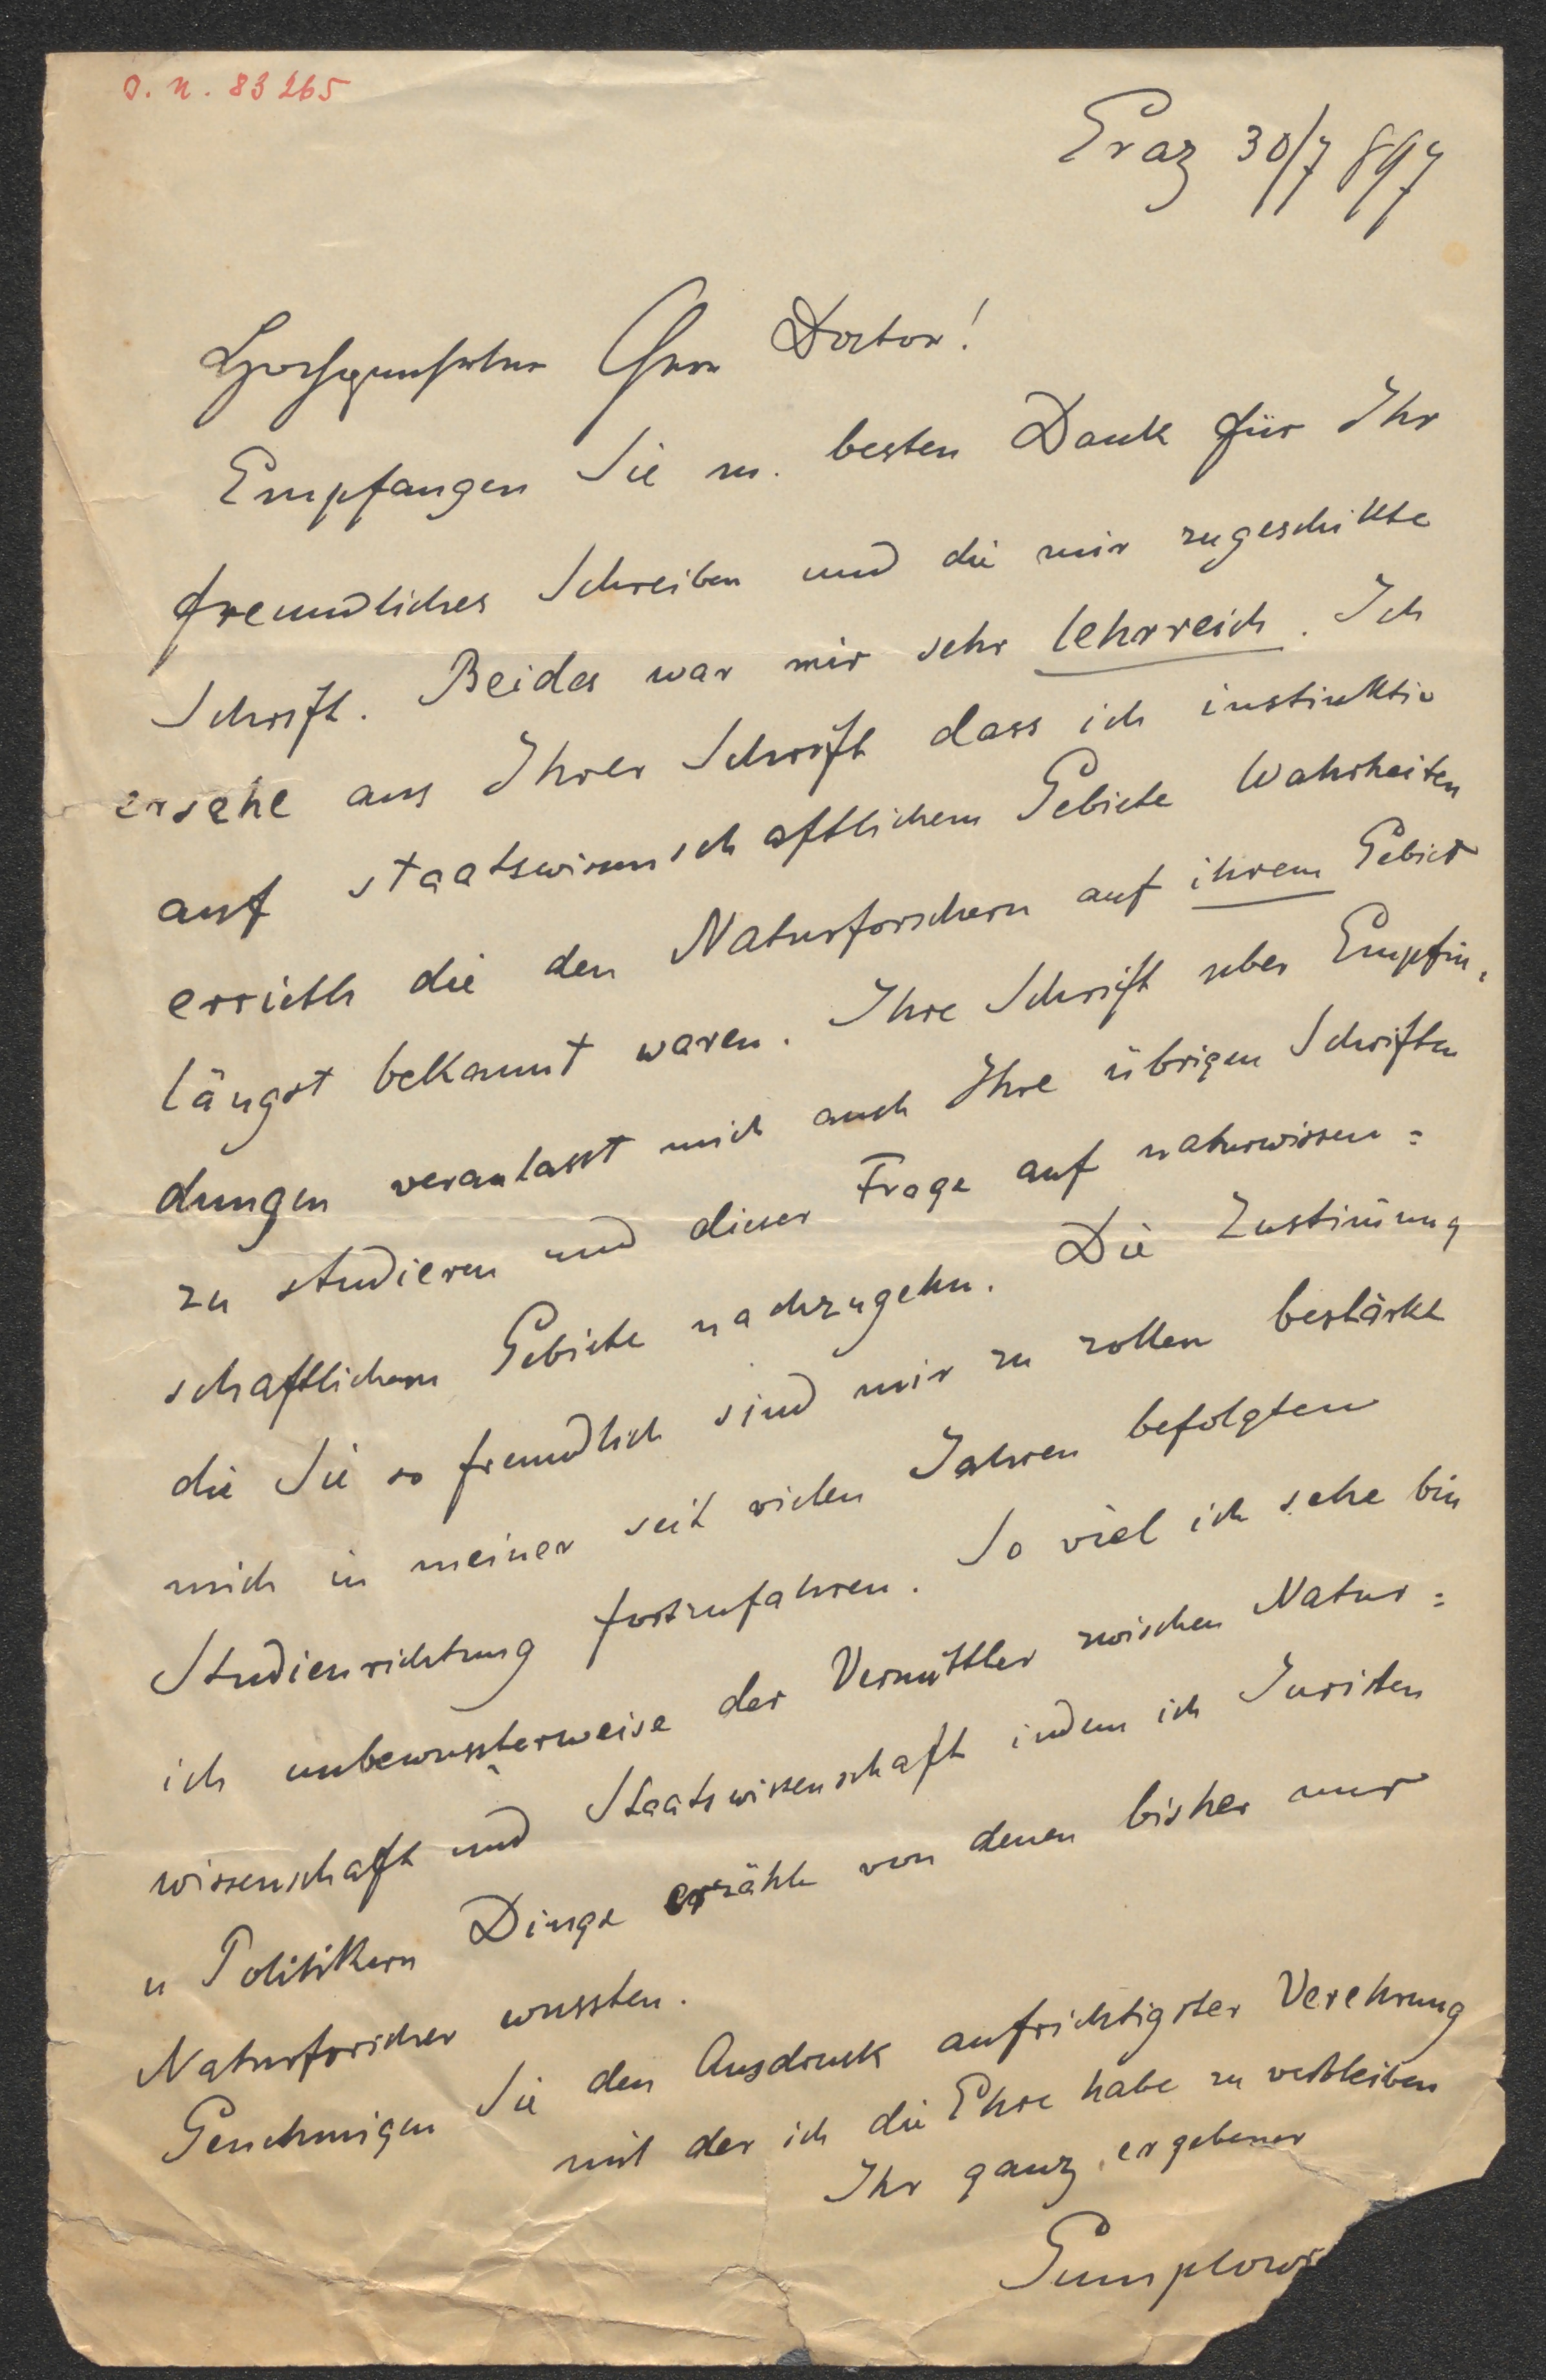 O. N. 83265
Graz 30/7 897
Hochgeehrter Herr Doctor!
Empfangen Sie m. besten Dank für Ihr
freundliches Schreiben und die mir zugeschikte
Schrift. Beides war mir sehr lehrreich. Ich
ersehe aus Ihrer Schrift dass ich instinktiv
auf staatswissenschaftlichem Gebiete Wahrheiten
errieth die den Naturforschern auf ihrem Gebiet
längst bekannt waren. Ihre Schrift über Empfin-
dungen veranlasst mich auch Ihre übrigen Schriften
zu studieren und dieser Frage auf naturwissen=
schaftlichem Gebiete nachzugehn. Die Zustim̄ung
die Sie so freundlich sind mir zu zollen bestärkt
mich in meiner seit vielen Jahren befolgten
Studienrichtung fortzufahren. So viel ich sehe bin
ich unbewussterweise der Vermittler zwischen Natur=
wissenschaft und Staatswissenschaft indem ich Juristen
u Politikern Dinge erzähle von denen bisher nur
Naturforscher wussten.
Genehmigen Sie den Ausdruck aufrichtigster Verehrung
mit der ich die Ehre habe zu verbleiben
Ihr ganz ergebener
Gumplow